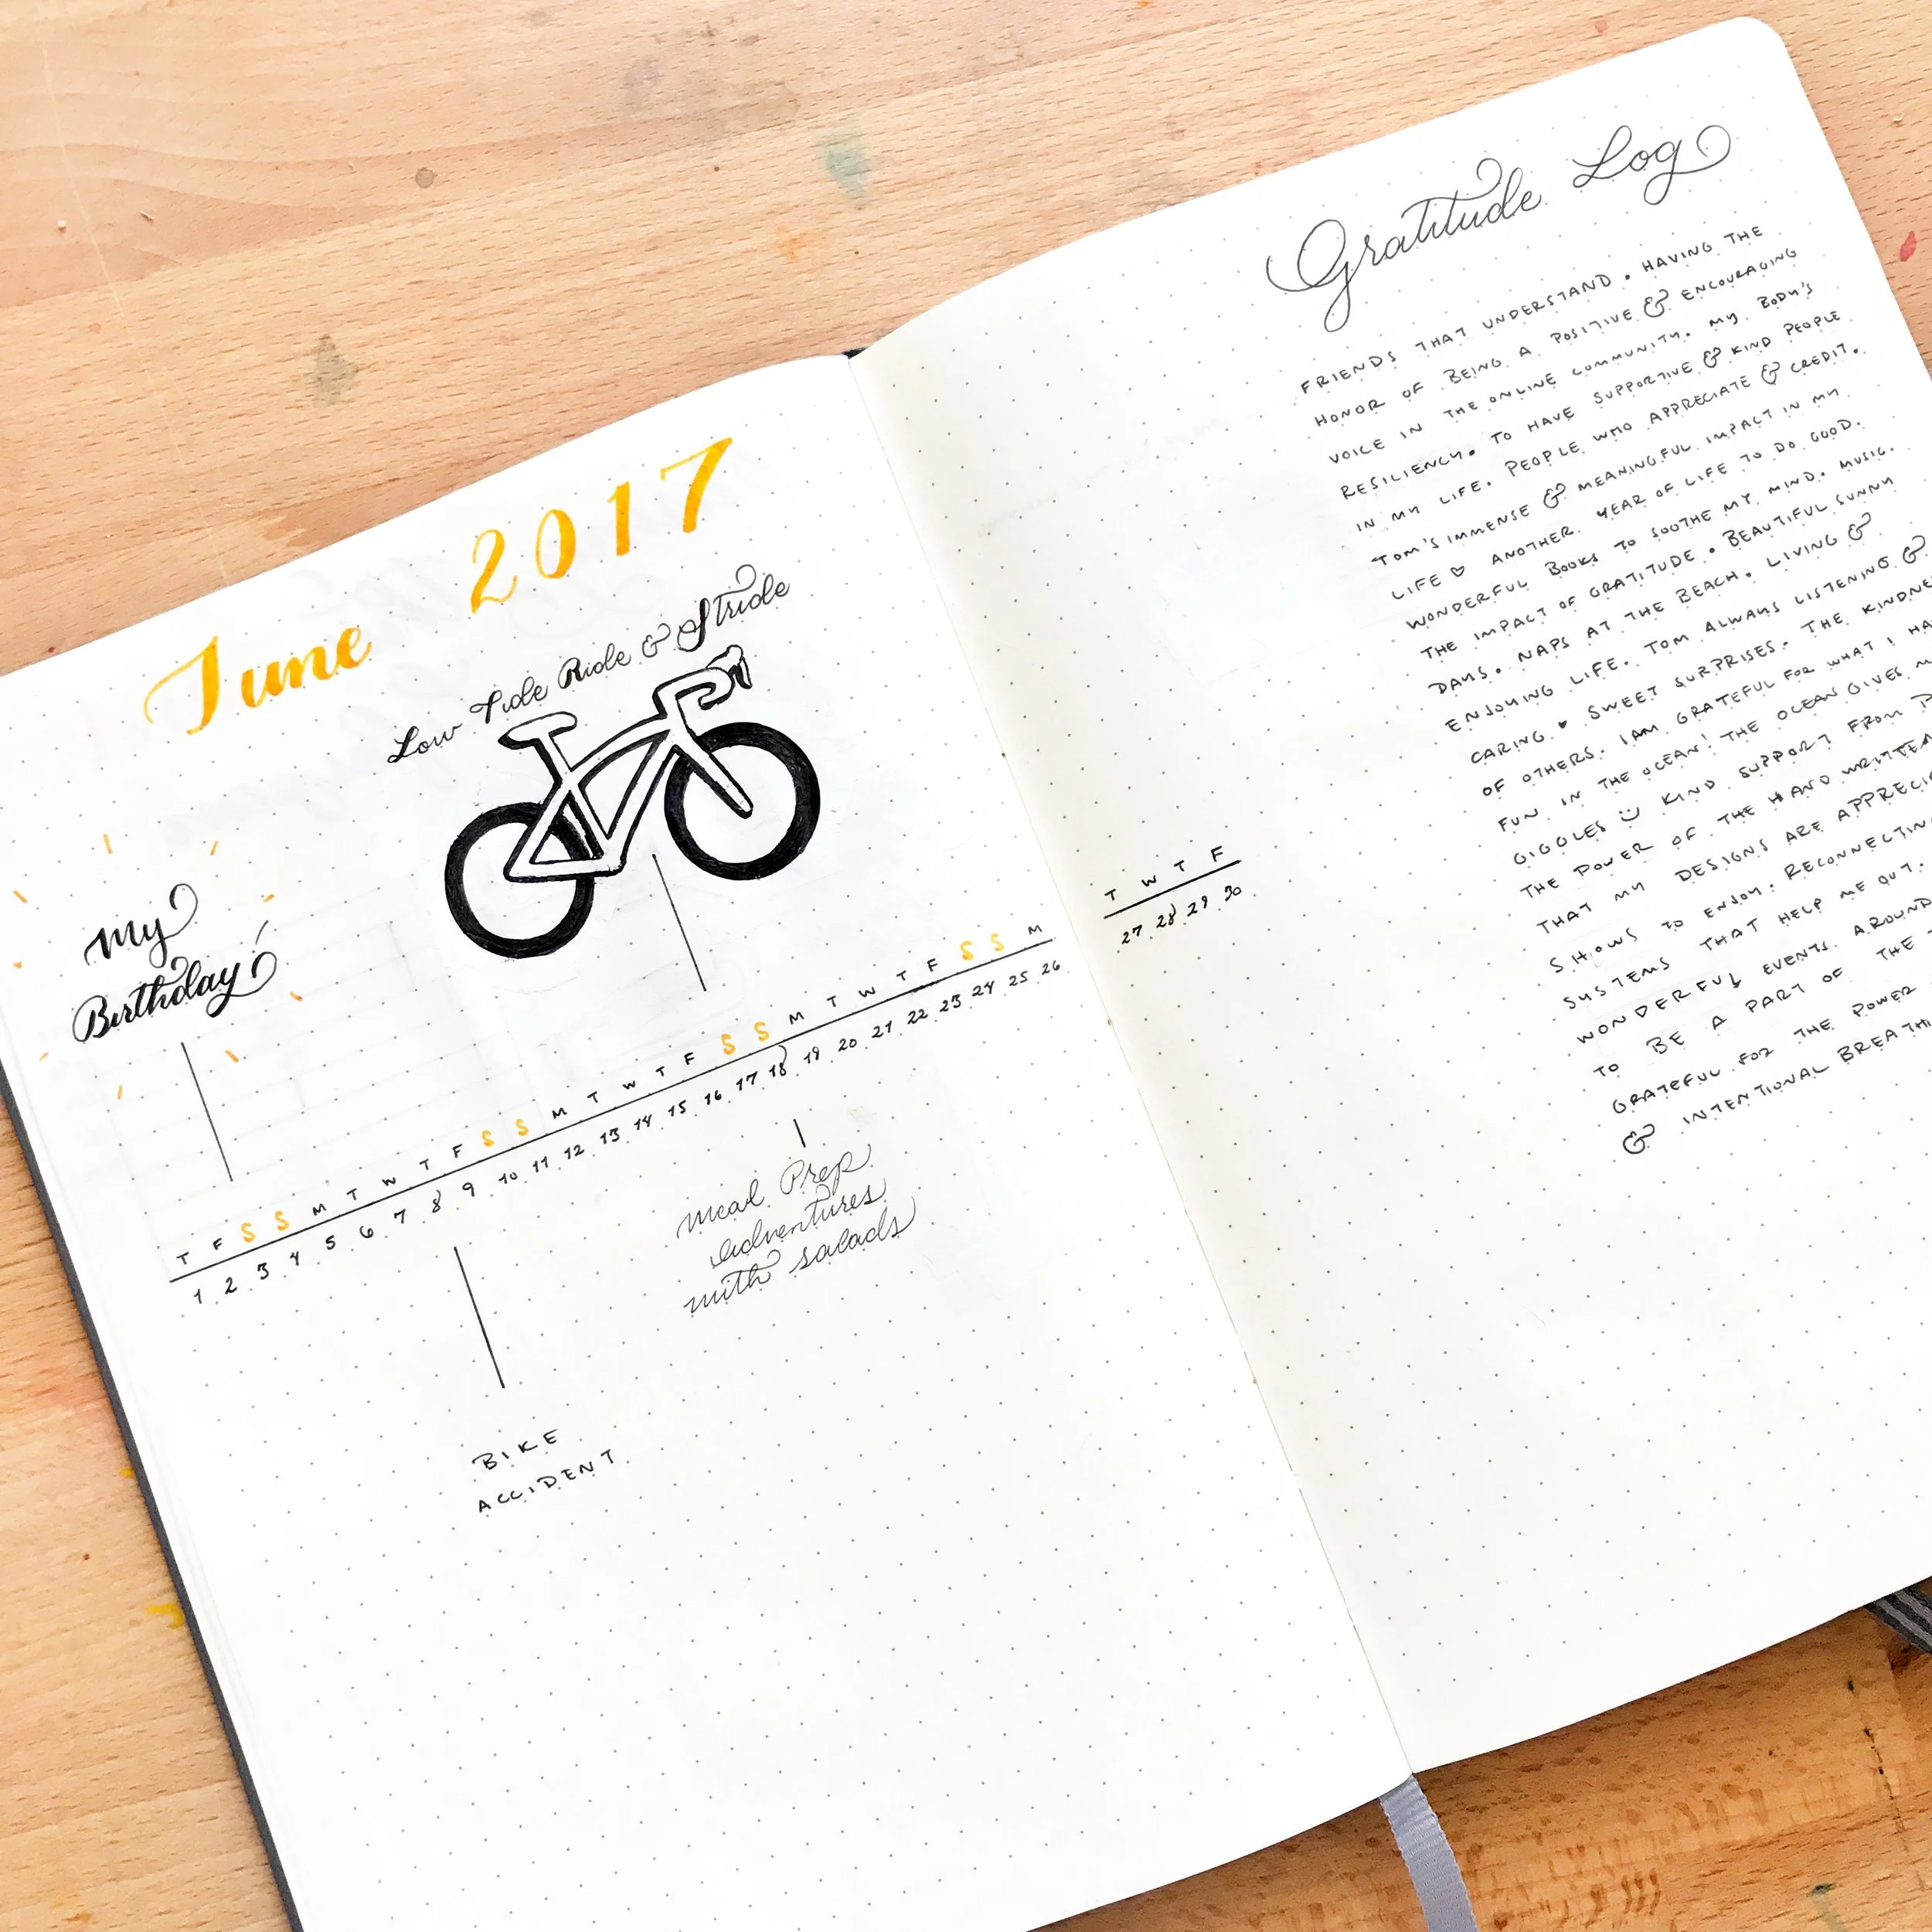 June 2017
Low Tide Ride & Stride
My
Birthday!
T F S S M T W T F S S M T W T F S S M T W T F S S M
1 2 3 4 5 6 7 8 9 10 11 12 13 14 15 16 17 18 19 20 21 22 23 24 25 26
Meal Prep
adventures
with salads
BIKE
ACCIDENT
T W T F
27 28 29 30
Gratitude Log
FRIENDS THAT UNDERSTAND. HAVING THE
HONOR OF BEING A POSITIVE & ENCOURAGING
VOICE IN THE ONLINE COMMUNITY. MY BODY'S
RESILIENCY. TO HAVE SUPPORTIVE & KIND PEOPLE
IN MY LIFE. PEOPLE WHO APPRECIATE & CREDIT.
TOM'S IMMENSE & MEANINGFUL IMPACT IN MY
LIFE ♡ ANOTHER YEAR OF LIFE TO DO GOOD.
WONDERFUL BOOKS TO SOOTHE MY MIND. MUSIC.
THE IMPACT OF GRATITUDE. BEAUTIFUL SUNNY
DAYS. NAPS AT THE BEACH. LIVING &
ENJOYING LIFE. TOM ALWAYS LISTENING &
CARING ♥ SWEET SURPRISES. THE KINDNE
OF OTHERS. I AM GRATEFUL FOR WHAT I HA
FUN IN THE OCEAN! THE OCEAN GIVES M
GIGGLES :) KIND SUPPORT FROM P
THE POWER OF THE HAND WRITTEN
THAT MY DESIGNS ARE APPRECI
SHOWS TO ENJOY. RECONNECTING
SYSTEMS THAT HELP ME OUT.
WONDERFUL EVENTS AROUND
TO BE A PART OF THE
GRATEFUL FOR THE POWER
& INTENTIONAL BREATHI